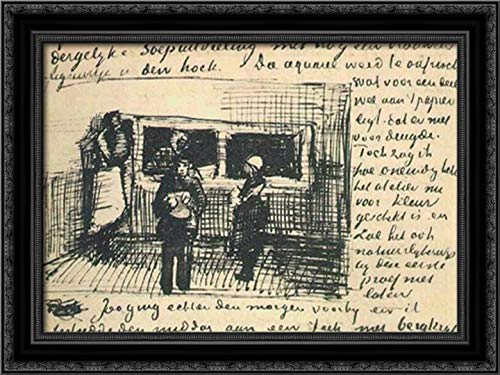 dergelijke soepuitdeeling met nog een vrouwen
figuurtje in den hoek. De aquarel werd te onfrisch
wat voor een deel
wel aan 't papier
ligt. Dat er niet
voor deugde.
Toch zag ik
hoe oneindig
het atelier nu
voor kleur
geschikt is en
zal het ook
natuurlijk
bij deze eerste
proef niet
laten
Zoo ging echter den morgen voorby en ik
den middag aan een met bergkryt